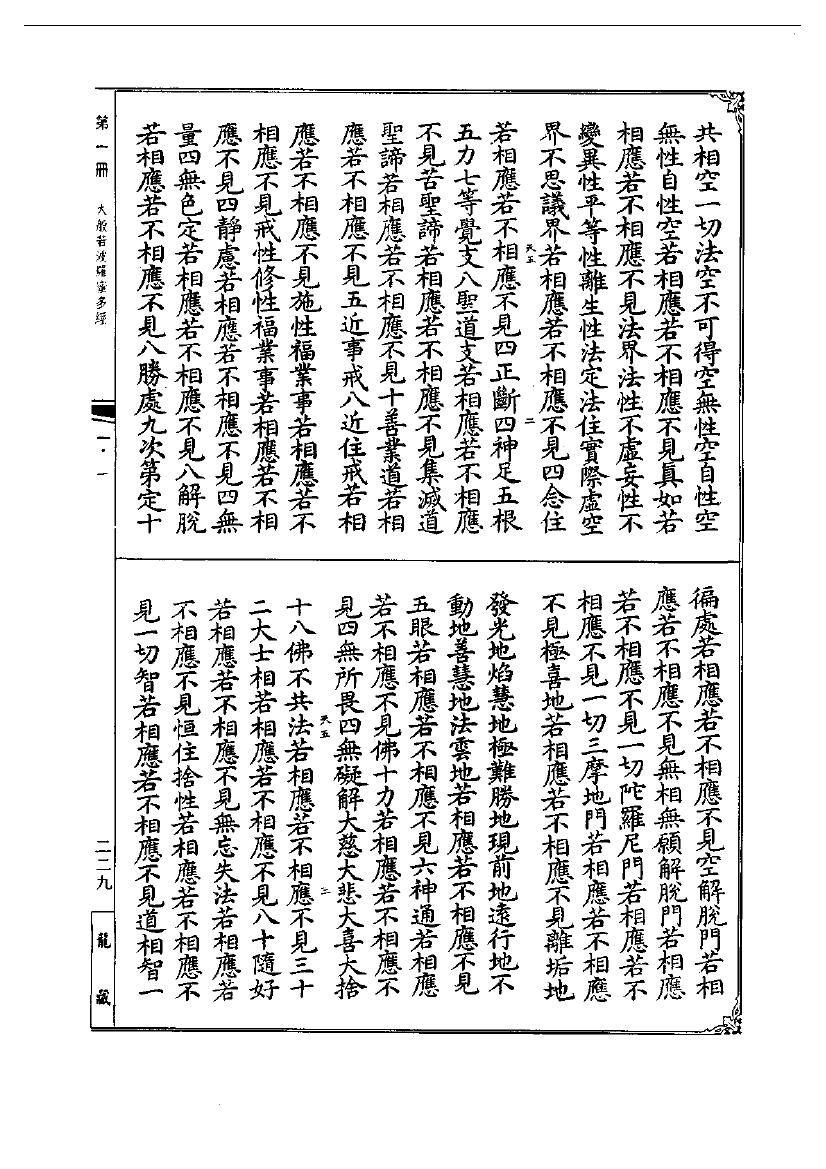 共相空一切法空不可得空無性空自性空
無性自性空若相應若不相應不見真如若
相應若不相應不見法界法性不虛妄性不
變異性平等性離生性法定法住實際虛空
界不思議界若相應若不相應不見四念住
天五
二
若相應若不相應不見四正斷四神足五根
五力七等覺支八聖道支若相應若不相應
不見苦聖諦若相應若不相應不見集滅道
聖諦若相應若不相應不見十善業道若相
應若不相應不見五近事戒八近住戒若相
應若不相應不見施性福業事若相應若不
相應不見戒性修性福業事若相應若不相
應不見四靜慮若相應若不相應不見四無
量四無色定若相應若不相應不見八解脫
若相應若不相應不見八勝處九次第定十
徧處若相應若不相應不見空解脫門若相
應若不相應不見無相無願解脫門若相應
若不相應不見一切陀羅尼門若相應若不
相應不見一切三摩地門若相應若不相應
不見極喜地若相應若不相應不見離垢地
發光地焰慧地極難勝地現前地遠行地不
動地善慧地法雲地若相應若不相應不見
五眼若相應若不相應不見六神通若相應
若不相應不見佛十力若相應若不相應不
見四無所畏四無礙解大慈大悲大喜大捨
天五
三
十八佛不共法若相應若不相應不見三十
二大士相若相應若不相應不見八十隨好
若相應若不相應不見無忘失法若相應若
不相應不見恒住捨性若相應若不相應不
見一切智若相應若不相應不見道相智一
第一冊 大般若波羅蜜多經
一·一
二二九
龍藏